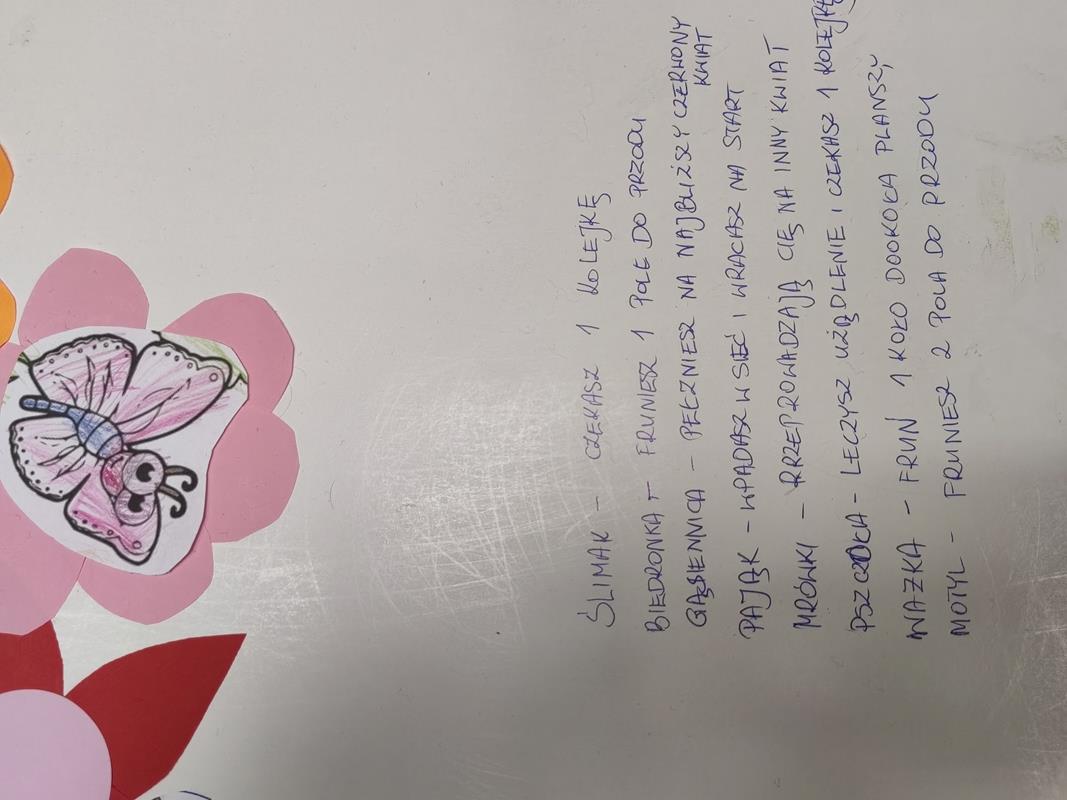 ŚLIMAK - CZEKASZ 1 KOLEJKĘ
BIEDRONKA - FRUNIESZ 1 POLE DO PRZODU
GĄSIENNICA - PEŁZNIESZ NA NAJBLIŻSZY CZERWONY
KWIAT
PAJĄK - WPADASZ W SIEĆ I WRACASZ NA START
MRÓWKI - PRZEPROWADZAJĄ CIĘ NA INNY KWIAT
PSZCZOŁA - LECZYSZ UŻĄDLENIE I CZEKASZ 1 KOLEJKĘ
WAŻKA - FRUŃ 1 KOŁO DOOKOŁA PLANSZY
MOTYL - FRUNIESZ 2 POLA DO PRZODU